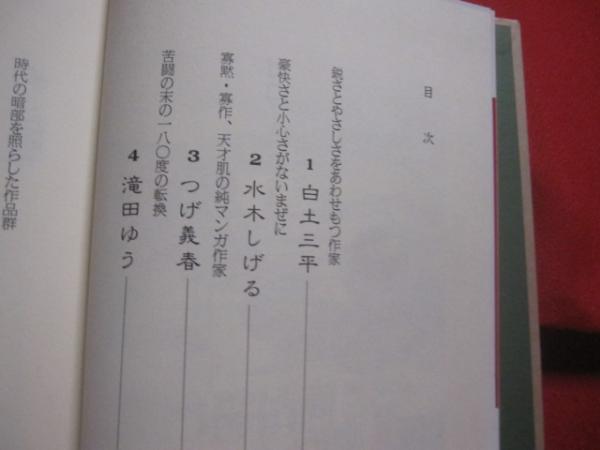 目次
鋭さとやさしさをあわせもつ作家
1 白土三平
豪快さと小心さがないまぜに
2 水木しげる
寡黙・寡作、天才肌の純マンガ作家
3 つげ義春
苦闘の末の一八〇度の転換
4 滝田ゆう
時代の暗部を照らした作品群